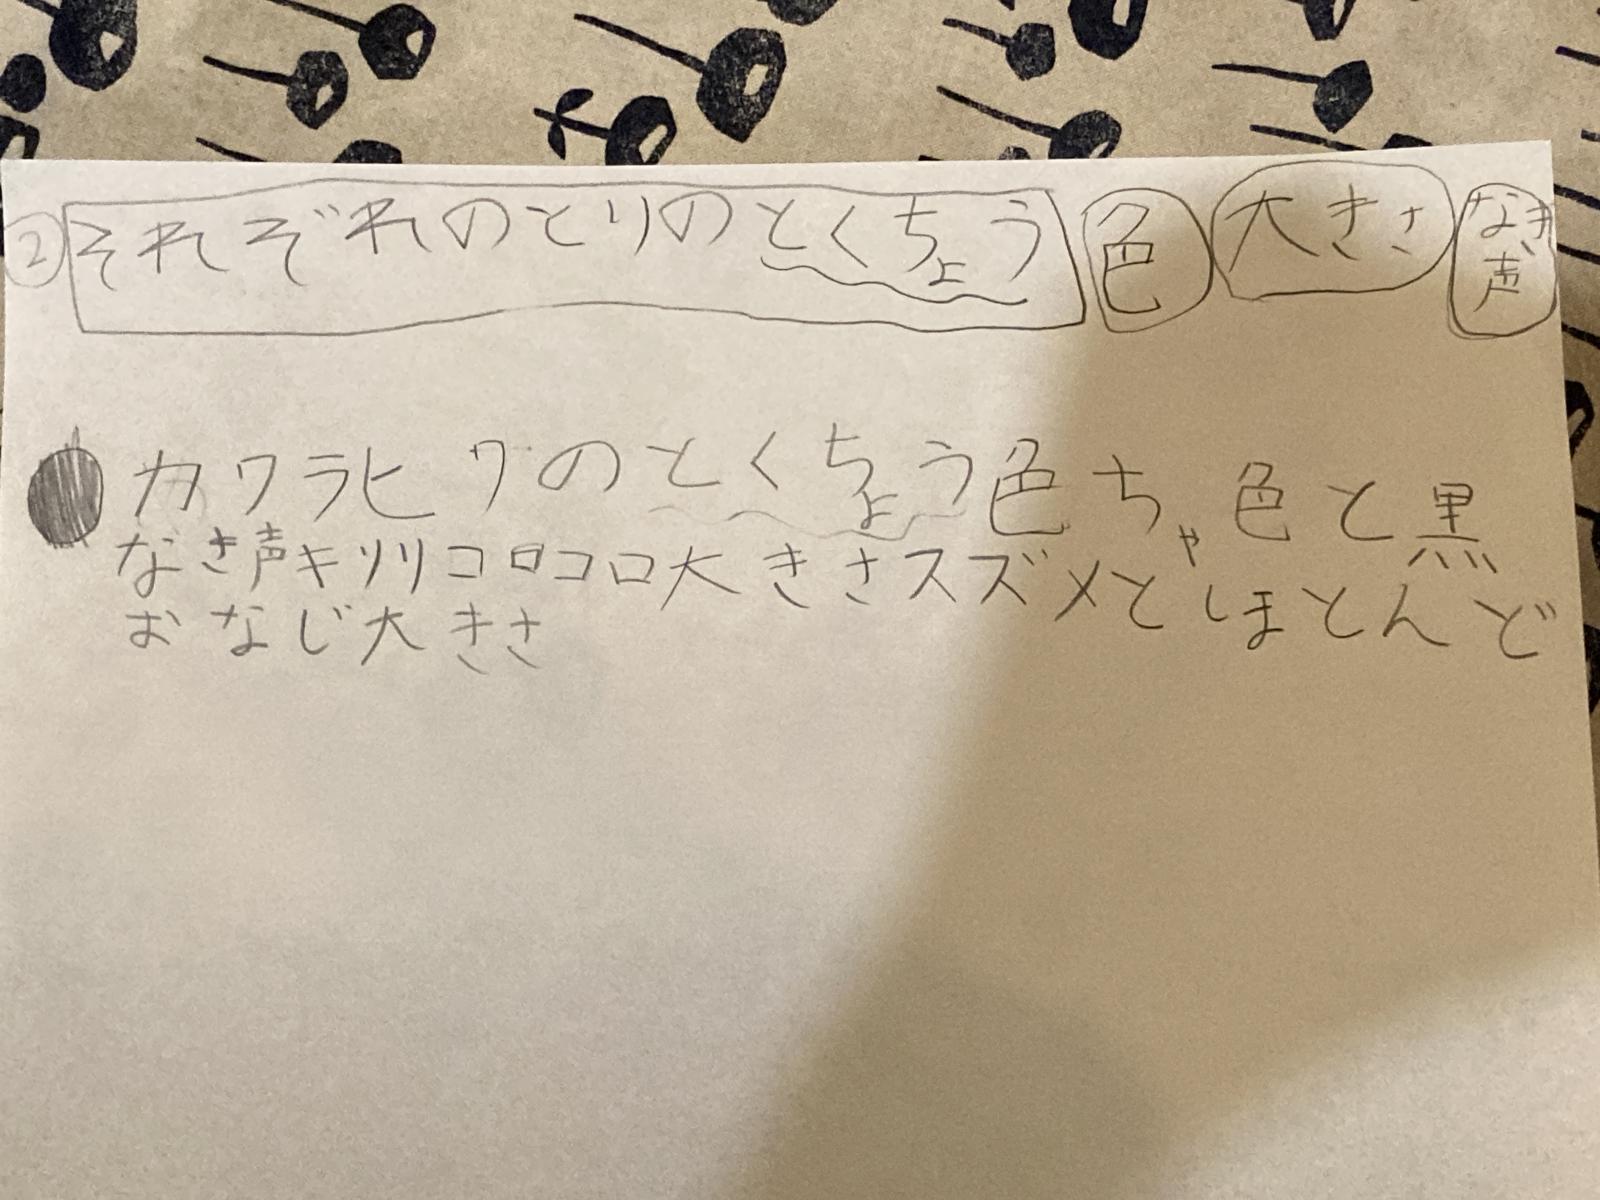 ②それぞれのとりのとくちょう 色 大きさ なき声
●カワラヒワのとくちょう色ちゃ色と黒
なき声キリリコロコロ大きさスズメとほとんど
おなじ大きさ